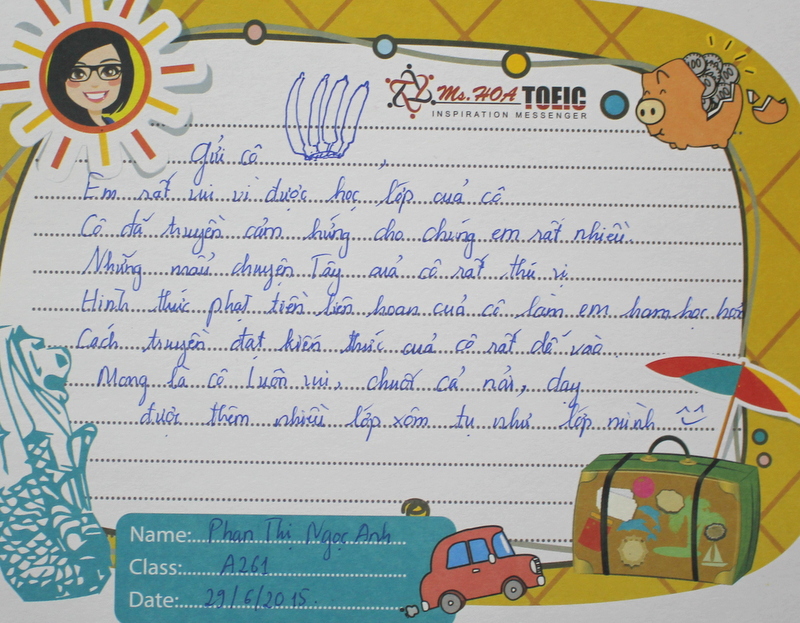 Ms.HOA TOEIC
INSPIRATION MESSENGER
Gửi cô ,
Em rất vui vì được học lớp cuả cô
Cô đã truyền cảm hứng cho chúng em rất nhiều.
Những mẩu chuyện Tây cuả cô rất thú vị
Hình thức phạt tiền liên hoan cuả cô làm em ham học hơn
Cách truyền đạt kiến thức cuả cô rất dễ vào
Mong là cô luôn vui, chuối cả nải, dạy
được thêm nhiều lớp xôm tụ như lớp mình ^^
Name: Phan Thị Ngọc Anh
Class: A261
Date: 29/6/2015.